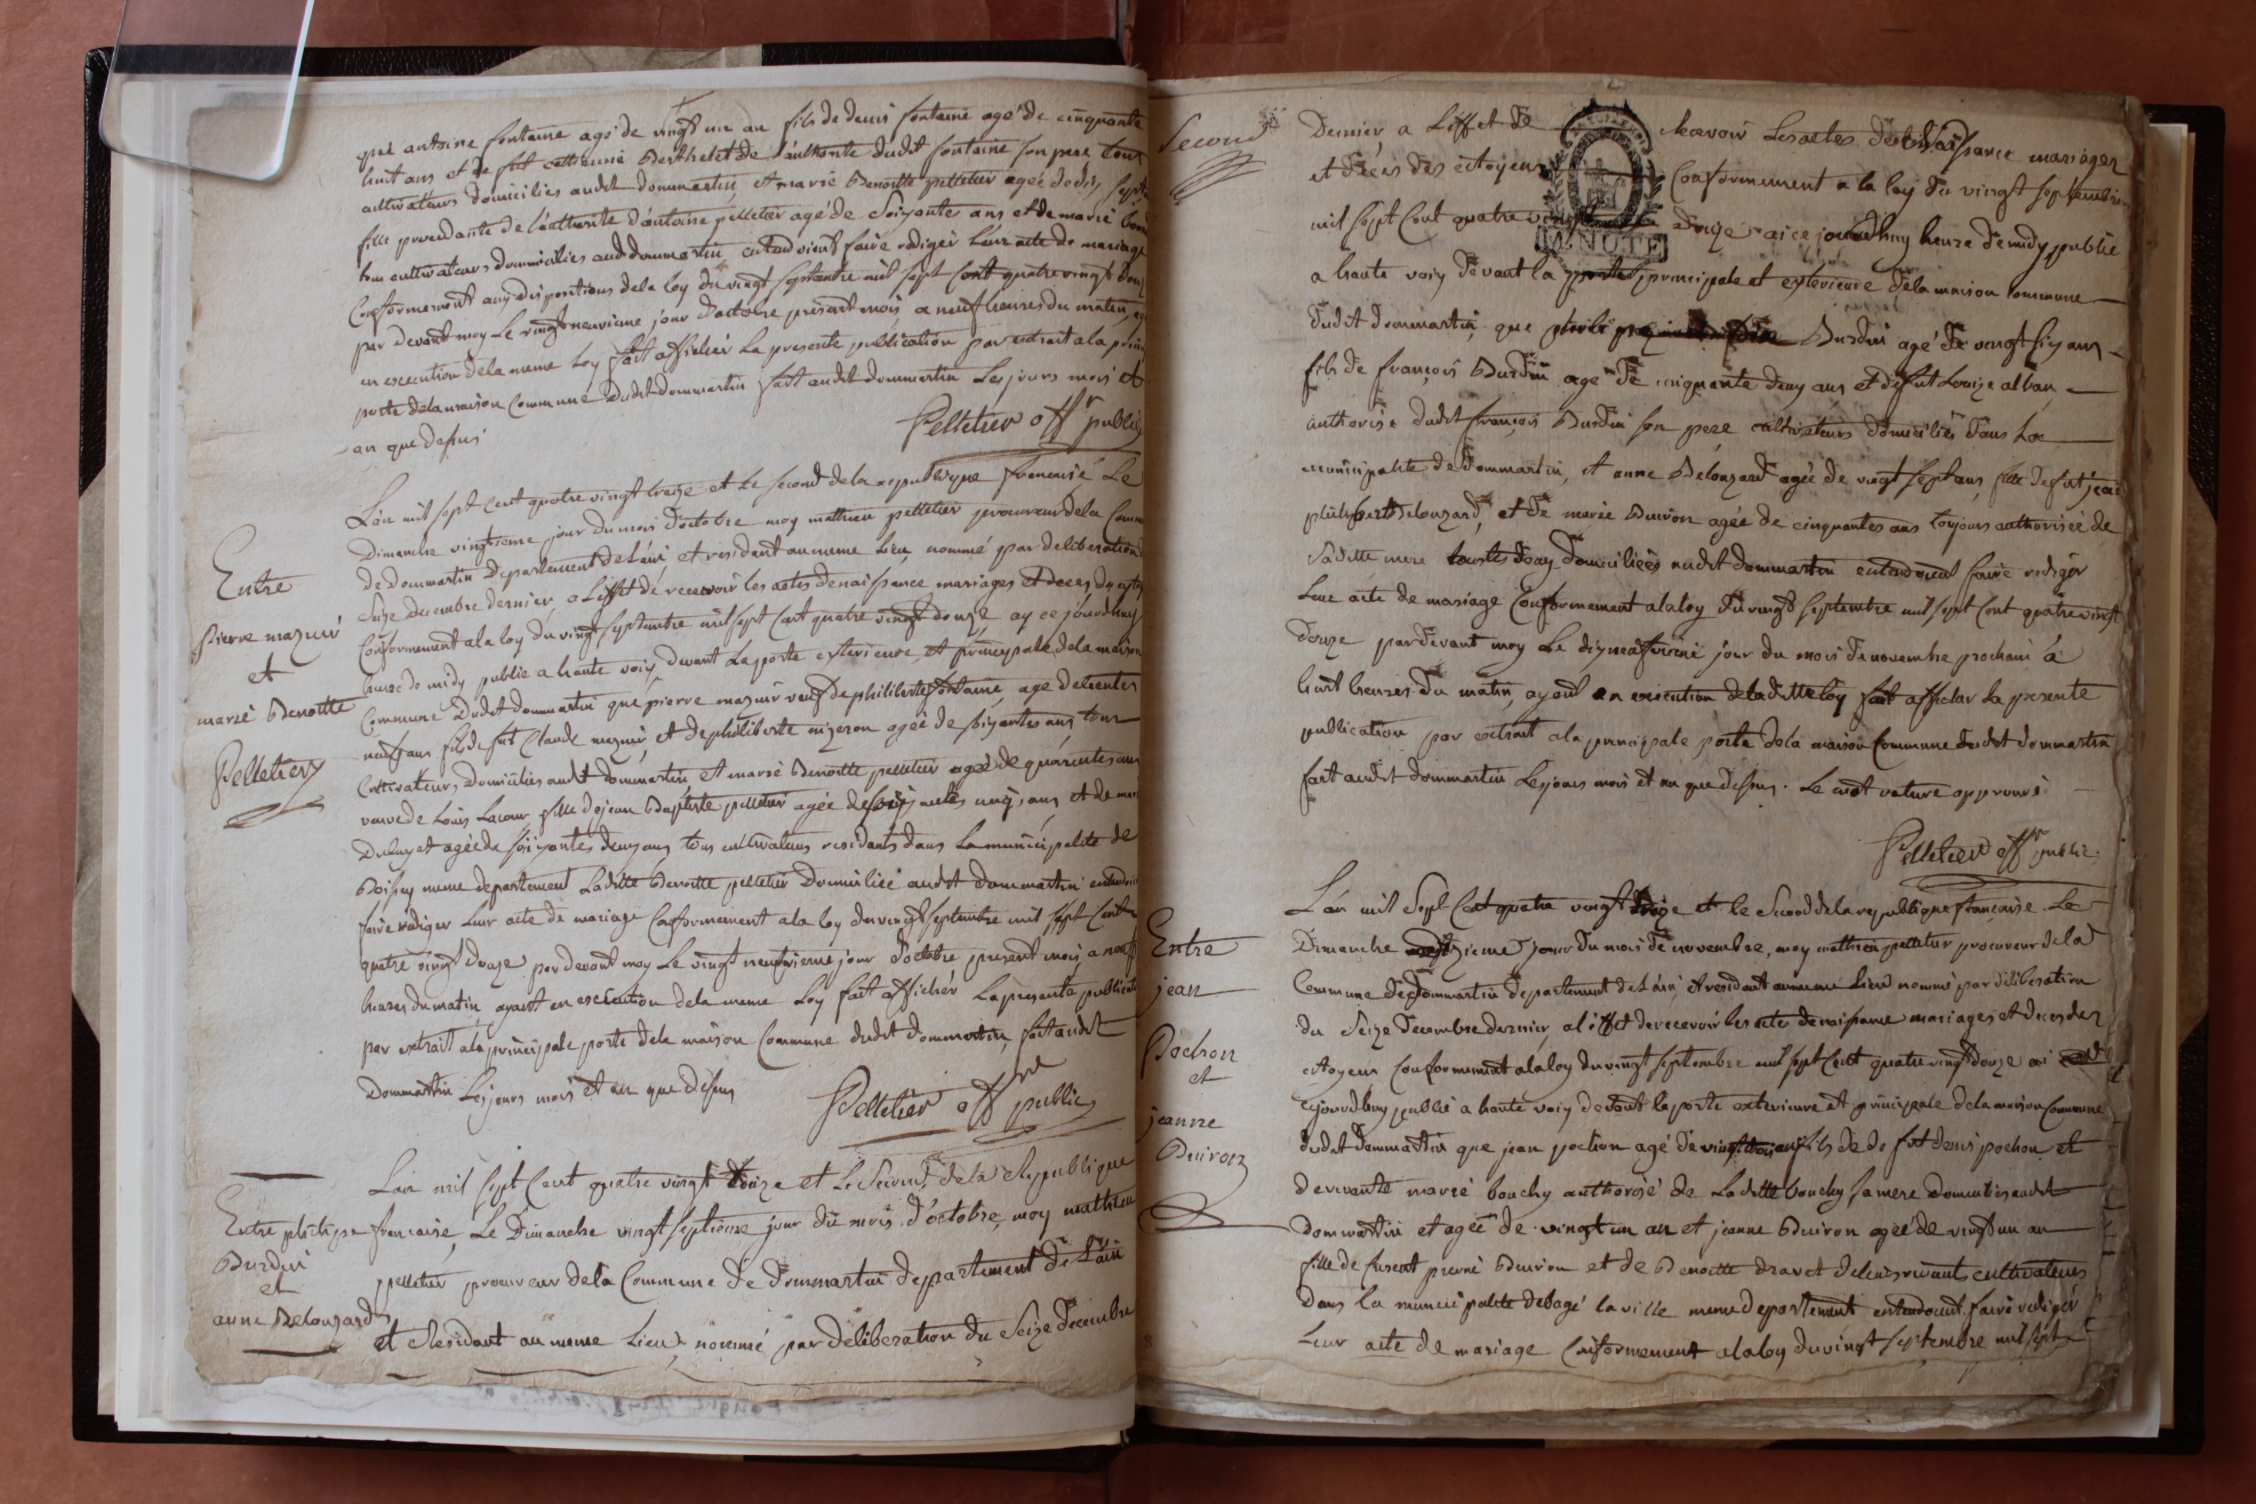 que antoine fontaine agé de vingt un an fils de denis fontaine agé de cinquante
huit ans et de fut catherine Berthelet de l'authorité dudit fontaine son pere tous
cultivateurs domiciliés audit dommartin, et marie Benoitte pelletier agée de dix sept
fille provendante de l'authorité d'antoine pelletier agé de soixantes ans et de marie
cultivateurs domiciliés audit dommartin entendoient faire rediger leur acte de mariage
Conformement aux dispositions de la loy du vingt septembre mil sept cent quatre vingt douze
par devant moy le vingt neuvieme jour d'octobre présent mois a neuf heures du matin,
en execution de la meme loy fait afficher la presente publication par extrait a la principale
porte de la maison Commune dudit dommartin fait audit dommartin les jours mois et
an que dessus
Pelletier offr public
Entre
pierre mazuir
et
marie Benoitte
Pelletier
L'an mil sept cent quatre vingt treize et le second de la republique francaise Le
Dimanche vingtieme jour du mois d'octobre moy mathieu pelletier procureur de la Commune
de dommartin departement de L'ain et residant au meme lieu, nommé par deliberation
seize decembre dernier, a L'effet de recevoir les actes de naissance mariages et deces des citoyens
Conformement a la loy du vingt septembre mil sept cent quatre vingt douze ay ce jourdhuy
heure de midy publie a haute voix devant la porte exterieure et principale de la maison
Commune dudit dommartin que pierre mazuir veuf de philiberte fontaine, age de trentes
neuf ans fils de fut Claude mazuir, et de philiberte nizeron agée de soixantes ans, tous
Cultivateurs, Domiciliés audit dommartin et marie Benoitte pelletier agée de quarentes ans
veuve de Louis Lacour fille de jean Baptiste pelletier agée de soixantes cinq ans, et de marie
Dubuyet agée de soixantes deux ans tous cultivateurs residants dans la municipalite de
Boissey meme departement Ladite Benoitte pelletier Domiciliée audit dommartin entendoient
faire rediger leur acte de mariage Conformement a la loy du vingt septembre mil sept Cent
quatre vingt douze par devant moy Le vingt neuvieme jour d'octobre present mois, a neuf
heures du matin ayant en execution de la meme Loy fait afficher la presente publication
par extrait a la principale porte de la maison Commune dudit dommartin, fait audit
Dommartin les jours mois et an que dessus
Pelletier offr public
Entre philipe
Burdin
et
anne Delonzard
L'an mil sept Cent quatre vingt treize et Le Second de la Republique
francaise, Le Dimanche vingt septieme jour du mois d'octobre, moy mathieu
pelletier procureur de la Commune de Dommartin departement de L'ain
et Residant au meme Lieu nommé par deliberation du Seize decembre
Second
Dernier, a L'effet de Recevoir Les actes de Naissance mariages
et décés des citoyens Conformement a la loy du vingt septembre
mil sept Cent quatre vingt douze ai ce jourdhuy heure de midy publie
a haute voix devant la porte principale et exterieure de la maison commune
dudit dommartin que Burdin agé de vingt six ans
fils de françois Burdin age de cinquante deux ans et de fut Louize alban
authorise dudit françois Burdin son pere cultivateurs domiciliés dans la
municipalite de dommartin, et anne Delonzard agée de vingt sept ans, fille de fut jean
philibert Delonzard, et de marie Buiron agée de cinquantes ans toujours authorisée de
sa ditte mere toustes deux Domiciliées audit dommartin entendoient faire rediger
Leur acte de mariage Conformement a la loy du vingt septembre mil sept Cent quatre vingt
douze par devant moy Le dix neuvieme jour du mois de novembre prochain à
huit heures du matin, ayant en execution de la ditte loy fait afficher la presente
publication par extrait a la principale porte de la maison Commune dudit dommartin
fait audit dommartin les jours mois et an que dessus. Le mot rature approuvé.
Pelletier offr public.
Entre
jean
Pochon
et
jeanne
Buiron
L'an mil Sept Cent quatre vingt treize et le Second de la republique francaise. Le
Dimanche jour du mois de novembre, moy mathieu pelletier procureur de la
Commune de Dommartin departement de L'ain, et residant au meme Lieu nommé par deliberation
du Seize decembre dernier, a l'effet de recevoir les actes de naissance mariages et deces des
citoyens Conformement a la loy du vingt septembre mil sept Cent quatre vingt douze ai
cejourdhuy publié a haute voix devant la porte exterieure et principale de la maison Commune
dudit Dommartin que jean pochon agé de vingt trois ans fils de de fut denis pochon et
de vivante marie bouchy authorisé de La ditte bouchy sa mere domiciliés audit
Dommartin et agée de vingt un an et jeanne Buiron agée de vingt un an
fille de furent pierre Buiron et de Benoitte dravet de leurs vivants cultivateurs
dans la municipalite de bagé la ville meme departement entendoient faire rediger
Leur acte de mariage Conformement a la loy du vingt septembre mil sept
MINUTE